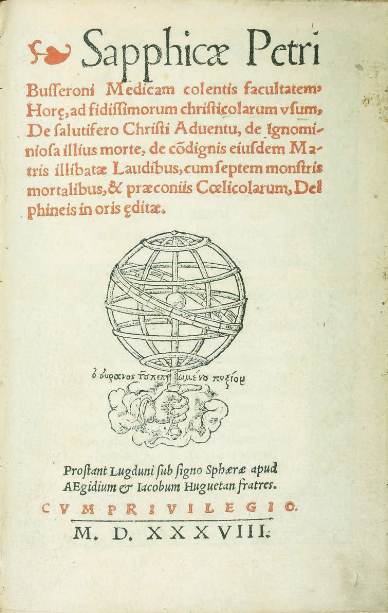 Sapphicæ Petri
Busseroni Medicam colentis facultatem,
Horę, ad fidissimorum christicolarum vsum,
De salutifero Christi Aduentu, de Ignomi-
niosa illius morte, de cõdignis eiusdem Ma-
tris illibatæ Laudibus, cum septem monstris
mortalibus, & præconiis Cœlicolarum, Del
phineis in oris ęditæ.
Prostant Lugduni sub signo Sphæræ apud
AEgidium & Iacobum Huguetan fratres.
CVM PRIVILEGIO.
M. D. XXXVIII.